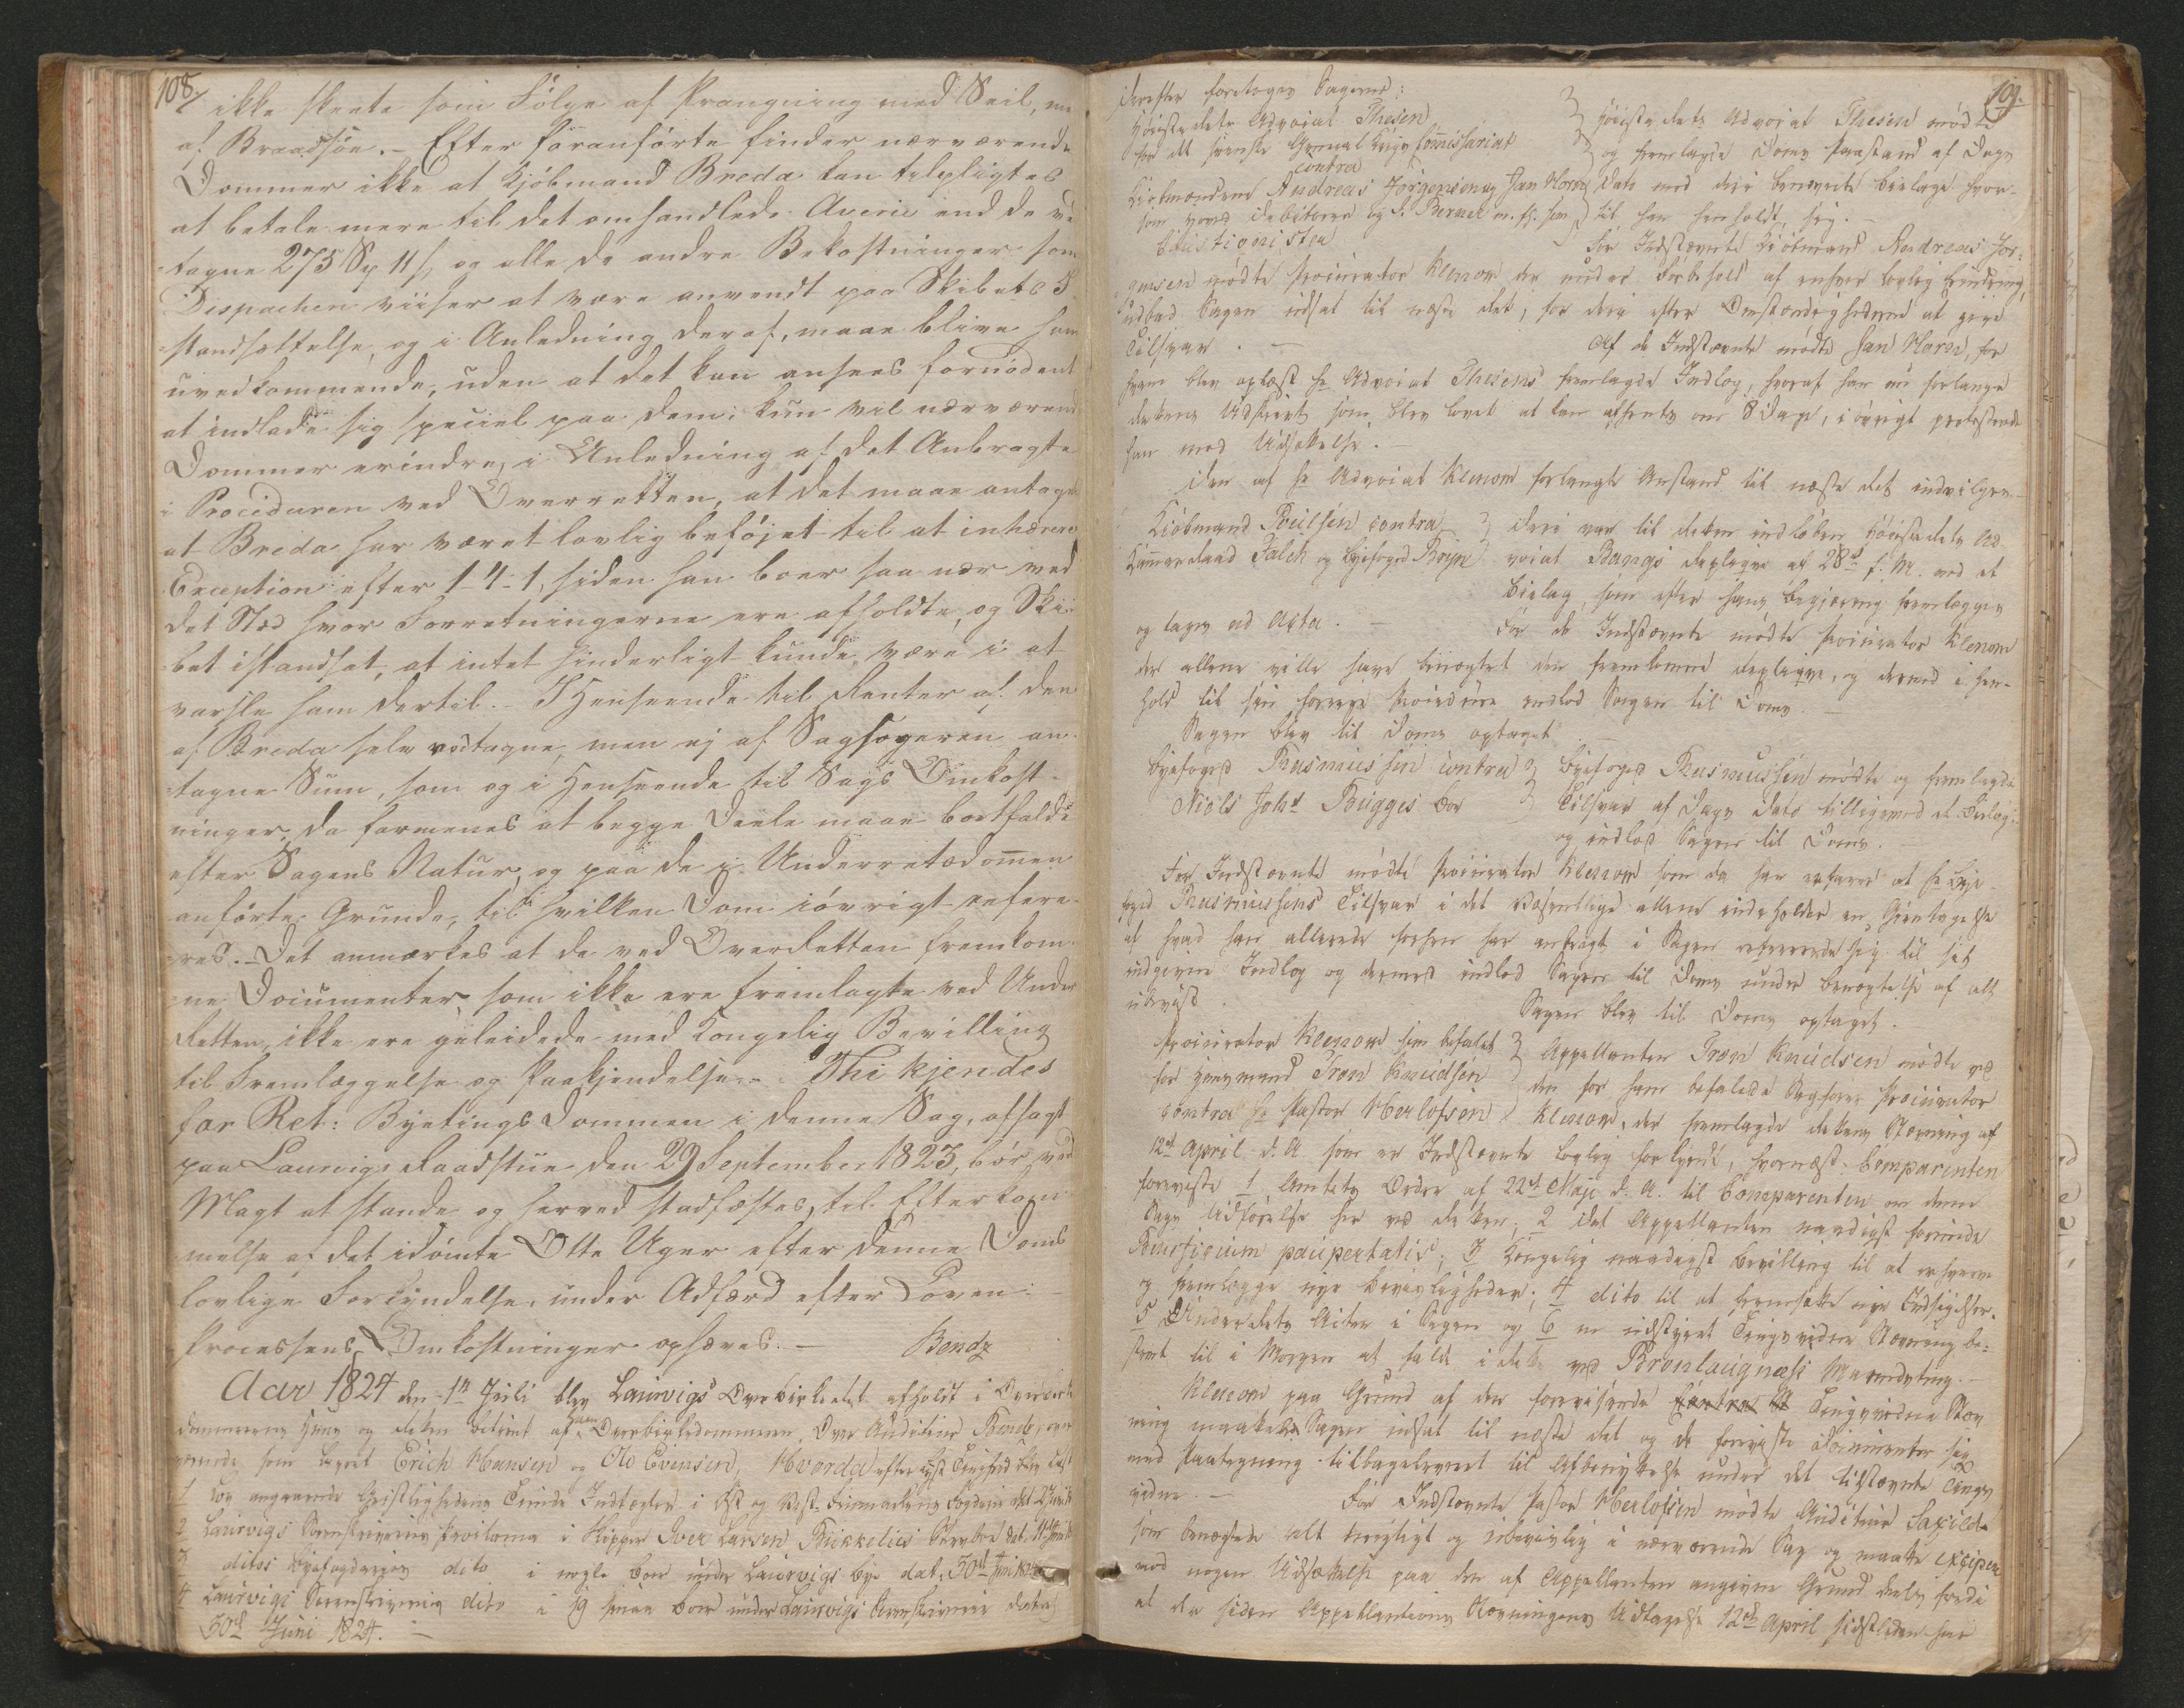 108.
ikke skeete som Følge af Prangning med Seil, men
af Braadsøe. - Efter foranførte finder nærværende
Dommer ikke at Kjøbmand Breda kan tilpligtes
at betale mere til det omhandlede Averie end de ved-
tagne 275 Sp 11 s, og alle de andre Bekostninger som
Dispachen viiser at være anvendt paa Skibets I-
standsættelse, og i Anledning deraf, maae blive ham
uvedkommende, uden at det kan ansees fornødent
at indlade sig speciel paa dem; kun vil nærværende
Dommer erindre, i Anledning af det Anbragte
i Proceduren ved Overretten, at det maae antages
at Breda har været lovlig beføjet til at inhærere
Exception efter 1-4-1, siden han boer saa nær ved
det Sted hvor Forretningerne ere afholdte, og Ski-
bet istandsat, at intet hinderligt kunde være i at
varsle ham dertil. - I Henseende til Renter af den
af Breda selv vedtagne, men ej af Sagsøgeren an-
tagne Sum, som og i Henseende til Sags Omkost-
ninger, da formenes at begge Deele maae bortfalde
efter Sagens Natur, og paa de i Underretsdommen
anførte Grunde, til hvilken Dom iøvrigt refere-
res. - Det anmærkes at de ved Overretten fremkom-
ne Documenter som ikke ere fremlagte ved Under
Retten, ikke ere geleidede med Kongelig Bevilling
til Fremlæggelse og Paakjendelse. - Thi kjendes
for Ret: Byetings Dommen i denne Sag, afsagt
paa Laurvigs Raadstue den 29 September 1823, bør ved
Magt at stande og herved stadfæstes, til Efterkom-
melse af det idømte Otte Uger efter denne Doms
lovlige Forkyndelse, under Adfærd efter Loven. -
Processens Omkostninger ophæves. - Bendz
Aar 1824 den 1te Juli blev Laurvigs Overbirkeret afholdt i Overbirke
dommerens Huus og Retten betient af Overbirkedommeren, Over Auditeur Bendz, over
værende som Lavret Erich Hansen og Ole Evensen, Hvorda efter lyst Tingfred blev læst
1 Lov angaaende Geistlighedens Tiende Indtægter i Øst og Vest-Finmarkens Fogderie af 2 Junii
2 Laurvigs Sorenskriveries Proclama i Skipper Iver Larsen Bukkelies Sterboe dat: 11te Junii
3 ditos Byefogderies dito i nogle boer under Laurvigs Bye dat: 30te Juni
4 Laurvigs Sorenskriverie dito i 19 smaa boer under Laurvigs Sorenskriverie dateret
30te Juni 1824. -
109.
Derefter foretoges Sagerne:
Høiesterets Advocat Thesen
for det svenske General Krigs Commissariat
contra
Kiøbmændene Andreas Jørgensen og Jan Horn
som Debitorer og S. Berner m. fl. som
Cautionister
Høiesterets Advocat Thesen mødte
og fremlagde Doms Paastand af Dags
Dato med deri benævnte Bielage hvor-
til han henholdt sig. -
For Indstævnte Kiøbmand Andreas Jør-
gensen mødte Procurator Klenow der under Forbehold af enhver lovlig Erindring,
udbad Sagen udsat til næste Ret, for deri efter Omstændighederne at give
Tilsvar. - Af de Indstævnte mødte Jan Horn, for
hvem blev oplæst Hr Advocat Thesens fremlagde Indlæg, hvoraf han nu forlangte
Rettens Udskrivt som blev lovet at kan afhentes om 8 Dage, i øvrigt protesterede
han mod Udsættelse. -
Den af Hr Advocat Klenow forlangte Anstand til næste Ret indvilges.
Kiøbmand Poulsen contra
Kammerraad Falch og Byefoged Rozen
Deri var til Retten indløben Høiesterets Ad-
vocat Bangs Replique af 28de f. M. med et
Bielag, som efter hans Begjæring fremlægges
og tages ad Acta. - For de Indstævnte mødte Procurator Klenow
der allene ville have benægtet den fremkomne Replique, og dermed i Hen-
hold til sin forrige Procedure indlod Sagen til Doms. -
Sagen blev til Doms optaget
Byefoged Rasmussen contra
Niels Johs Brygges Boe
Byefoged Rasmussen mødte og fremlagde
Tilsvar af Dags Dato tilligemed et Bielag
og indlod Sagen til Doms. -
For Indstævnte mødte Procurator Klenow som da han erfarer at Hr Bye-
foged Rasmussens Tilsvar i det Væsentlige allene indeholder en Gientagelse
af hvad han allerede forhen har anbragt i Sagen refererede sig til sit
indgivne Indlæg og dermed indlod Sagen til Doms under Benægtelse af alt
ubeviist. Sagen blev til Doms optaget.
Procurator Klenow som befalet
for Huusmand Tron Knudsen
contra Hr Pastor Herlofsen
Appellanten Tron Knudsen mødte ved
den for ham befalede Sagfører Procurator
Klenow, der fremlagde Rettens Stævning af
12te April d. A. som er Indstævnte lovlig forkyndt, hvornæst Comparenten
foreviste 1 Amtets Ordre af 22de Maji d. A. til Comparenten om denne
Sags Udførelse her ved Retten; 2 Det Appellanten naadigst forundte
Beneficium paupertatis; 3 Kongelig naadigst Bevilling til at erhverve
og fremlægge nye Beviisligheder; 4 dito til at fremsætte nye Indsigelser.
5 Underrets Acten i Sagen og 6 en udstædt Tingsvidne Stævning be-
stemt til i Morgen at falde i Rette ved Bronlaugnæss Manredting. -
Klenow paa Grund af den foreviisende Tingsvidne Stæv-
ning maatte Sagen udsat til næste Ret og de foreviste Documenter sig
med Paategning tilbageleveret til Afbenyttelse under det tilstævnte Tings
vidne. - For Indstævnte Pastor Herlofsen mødte Auditeur Saxild
som benægtede alt urigtigt og ubeviislig i nærværende Sag og maatte excipere
mod nogen Udsættelse paa den af Appellanten angivne Grund deels fordi
at der siden Appellations Stævningens Udtagelse 12te April sidstleden har